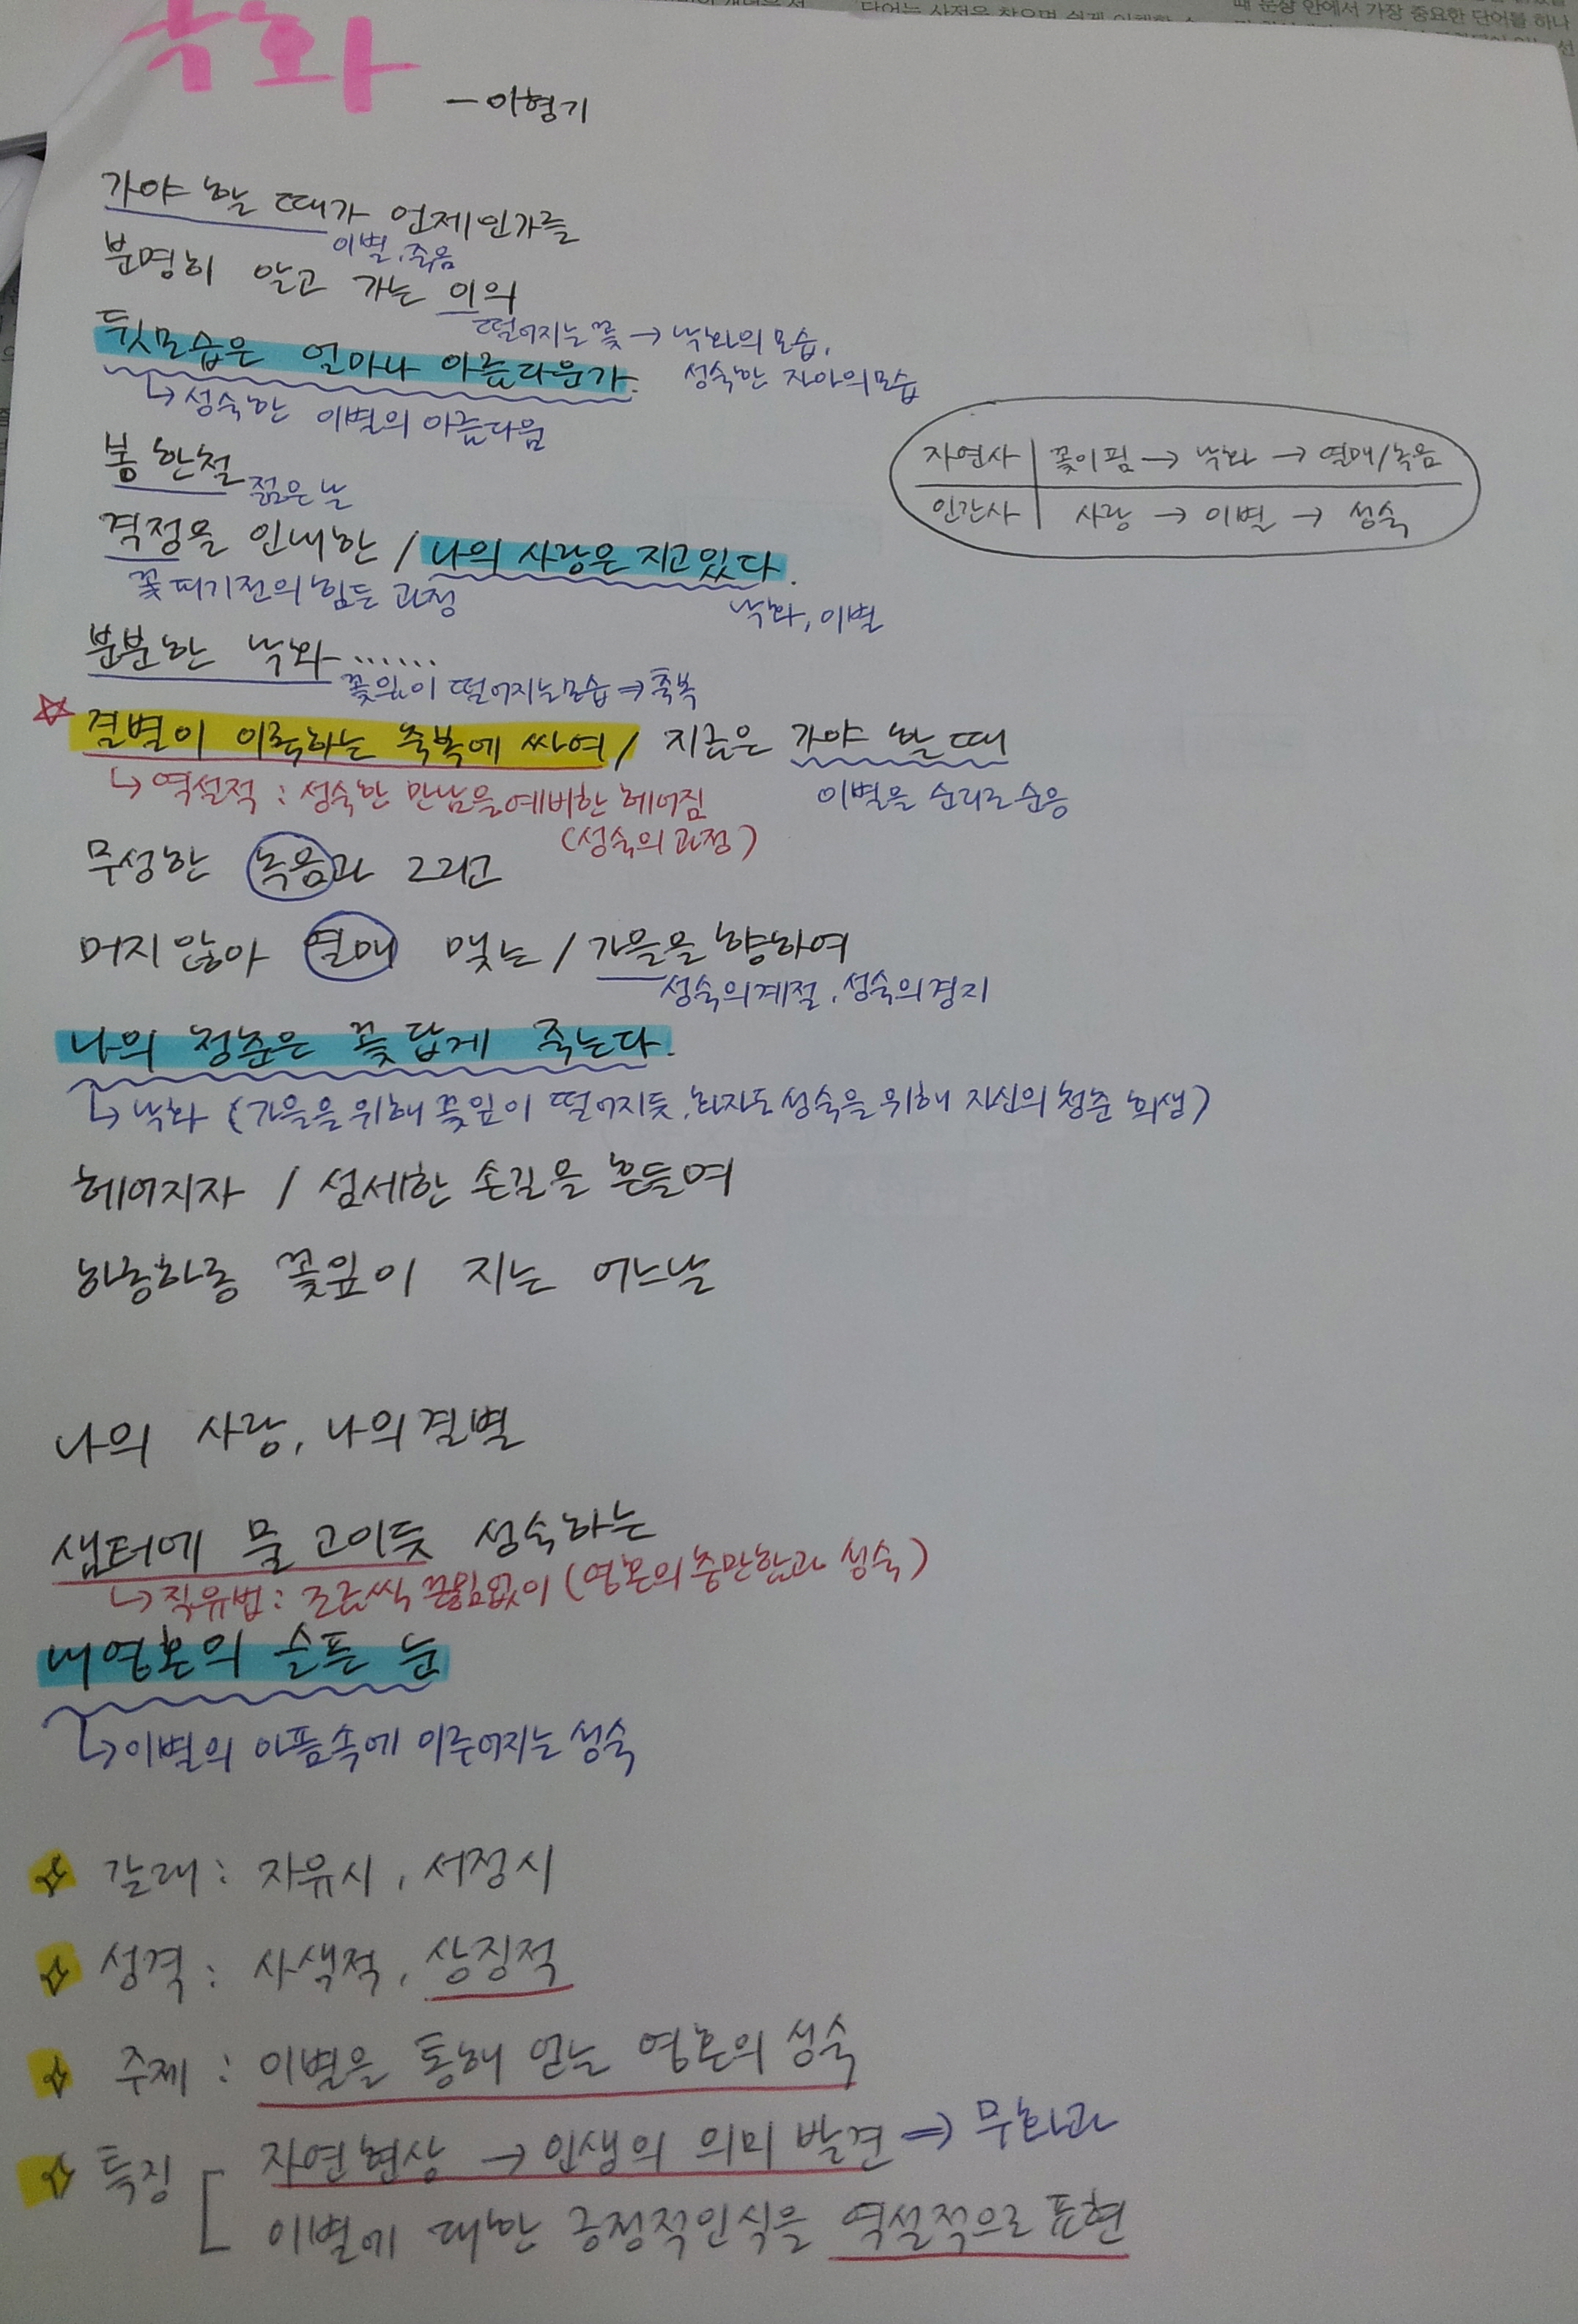 낙화
- 이형기
가야 할 때가 언제인가를
이별, 죽음
분명히 알고 가는 이의
떨어지는 꽃 → 낙화의 모습,
성숙한 자아의 모습
뒷모습은 얼마나 아름다운가.
↳ 성숙한 이별의 아름다움
봄 한철
젊은 날
격정을 인내한 / 나의 사랑은 지고 있다.
꽃 피기전의 힘든 과정
낙화, 이별
자연사 | 꽃이 핌 → 낙화 → 열매/녹음
인간사 | 사랑 → 이별 → 성숙
분분한 낙화……
꽃잎이 떨어지는 모습 ⇒ 축복
☆ 결별이 이룩하는 축복에 싸여 / 지금은 가야 할 때
↳ 역설적 : 성숙한 만남을 예비한 헤어짐
(성숙의 과정)
이별을 순리로 순응
무성한 녹음과 그리고
머지않아 열매 맺는 / 가을을 향하여
성숙의 계절, 성숙의 경지
나의 청춘은 꽃답게 죽는다.
↳ 낙화 (가을을 위해 꽃잎이 떨어지듯, 화자도 성숙을 위해 자신의 청춘 희생)
헤어지자 / 섬세한 손길을 흔들며
하롱하롱 꽃잎이 지는 어느날
나의 사랑, 나의 결별
샘터에 물 고이듯 성숙하는
↳ 직유법 : 조금씩 끊임없이 (영혼의 충만함과 성숙)
내 영혼의 슬픈 눈
↳ 이별의 아픔속에 이루어지는 성숙
갈래 : 자유시, 서정시
성격 : 사색적, 상징적
주제 : 이별을 통해 얻는 영혼의 성숙
특징 [ 자연현상 → 인생의 의미 발견 ⇒ 무화과
이별에 대한 긍정적인식을 역설적으로 표현